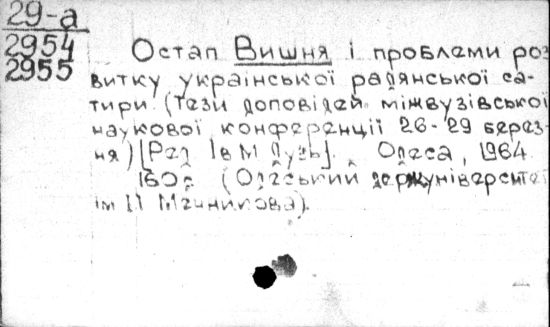 29-а
2954
2955
Остап Вишня і проблеми роз
витку української радянської са-
тири (тези доповідей міжвузівської
наукової конференції 26-29 берез-
ня) [Ред І в М Дузь]. Одеса, 1964
160с (Одеський держуніверситет
ім І І Мечникова).